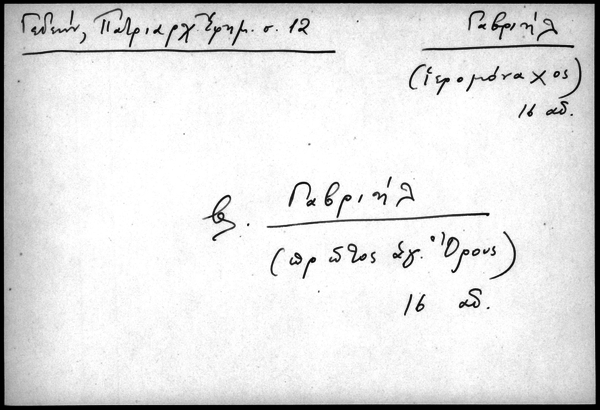 Γεδεών, Πατριαρχ. Ἐφημ. σ. 12
Γαβριήλ
(ἱερομόναχος)
16 αἰ.
βλ. Γαβριήλ
(πρῶτος ἁγ. Ὄρους)
16 αἰ.